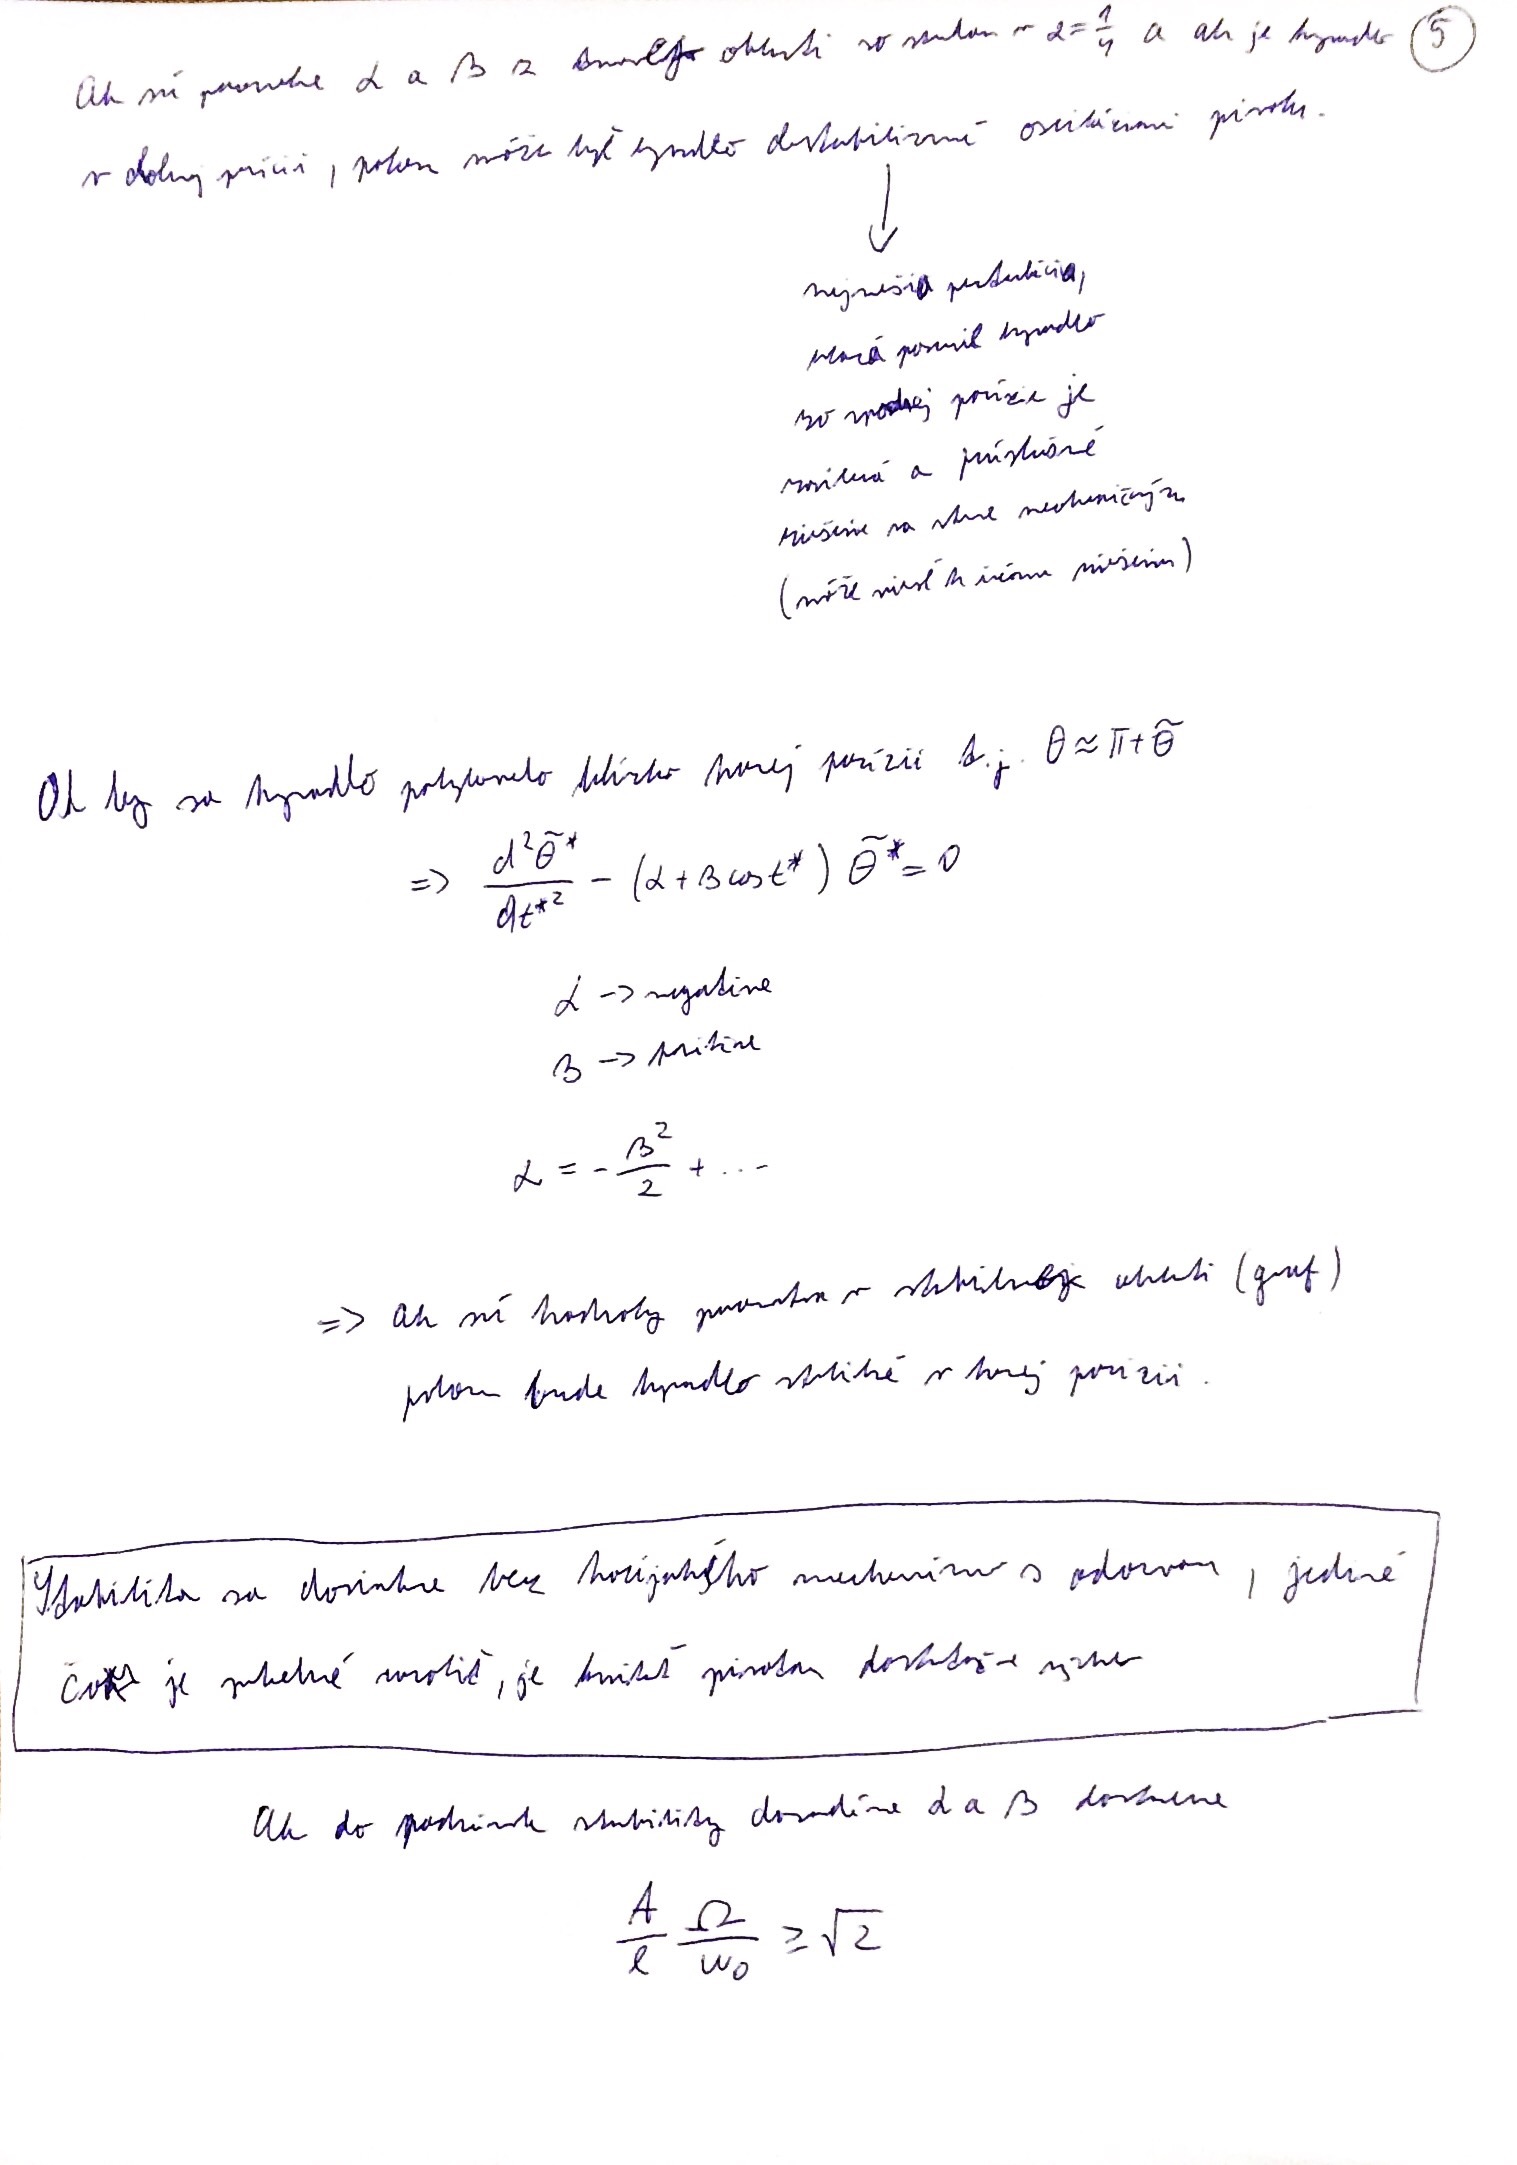 Ak sú α a β z oblasti so stredom v α = 1/4 a ak je kyvadlo ⑤
v dolnej pozícii, potom môže byť kyvadlo destabilizované osciláciami pivotu.
↓
najmenšia perturbácia,
ktorá posunie kyvadlo
zo spodnej pozície je
zosilená a príslušné
riešenie sa stane neohraničeným
(môže viesť k inému riešeniu)
Ak by sa kyvadlo pohybovalo blízko hornej pozícii t.j. θ ≈ π + θ̃
=> d²θ̃*/dt*² − (α + β cos t*) θ̃* = 0
α -> negatívne
β -> pozitívne
α = − β²/2 + ...
=> Ak sú hodnoty parametrov v stabilnej oblasti (graf)
potom bude kyvadlo stabilné v hornej pozícii.
Stabilita sa dosiahne bez hocijakého mechanizmu s odozvou, jediné
čo je potrebné urobiť, je kmitať pivotom dostatočne rýchlo
Ak do podmienok stability dosadíme α a β dostaneme
A/l Ω/ω₀ ≥ √2